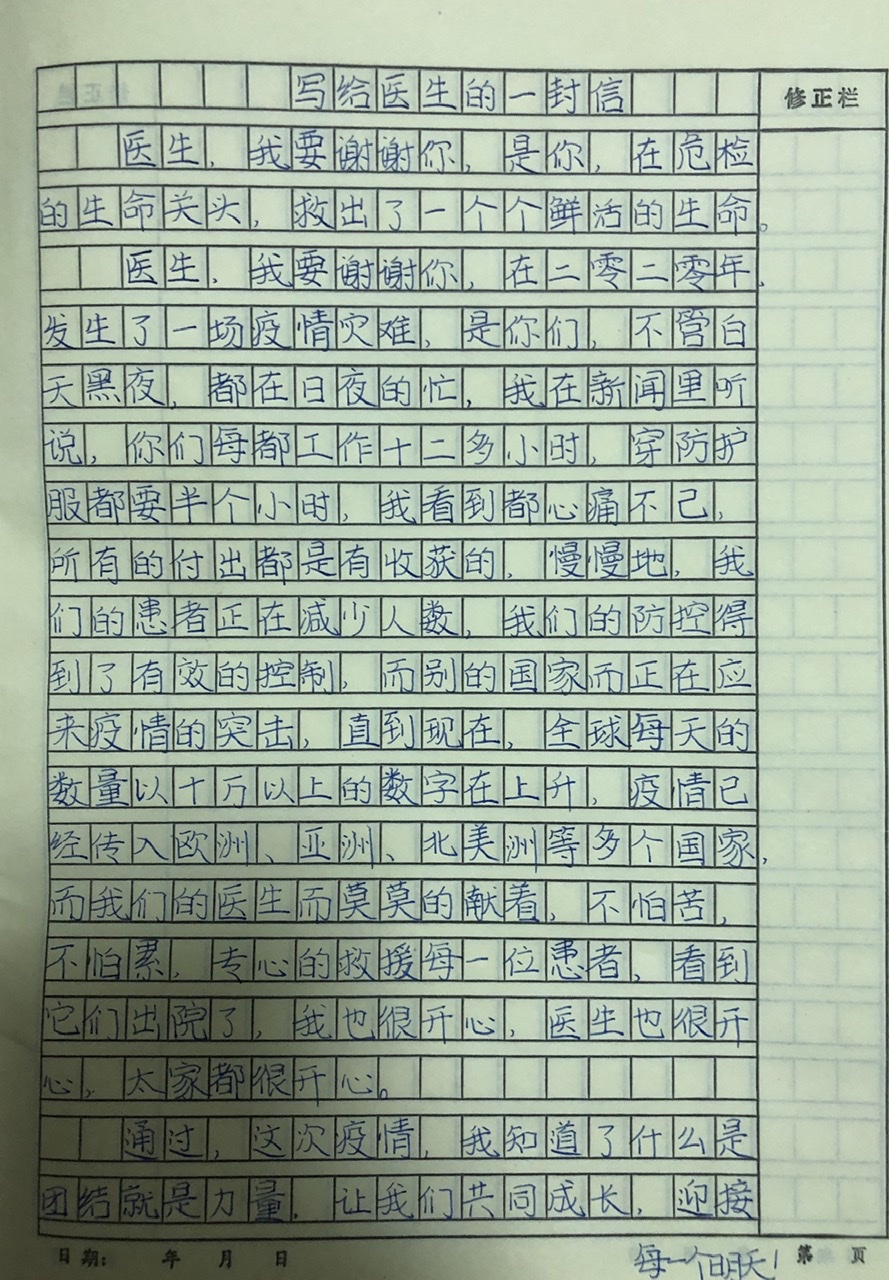 写给医生的一封信
修正栏
医生，我要谢谢你，是你，在危检
的生命关头，救出了一个个鲜活的生命。
医生，我要谢谢你，在二零二零年，
发生了一场疫情灾难，是你们，不管白
天黑夜，都在日夜的忙，我在新闻里听
说，你们每都工作十二多小时，穿防护
服都要半个小时，我看到都心痛不己，
所有的付出都是有收获的，慢慢地，我
们的患者正在减少人数，我们的防控得
到了有效的控制，而别的国家而正在应
来疫情的突击，直到现在，全球每天的
数量以十万以上的数字在上升，疫情已
经传入欧洲、亚洲、北美洲等多个国家，
而我们的医生而莫莫的献着，不怕苦，
不怕累，专心的救援每一位患者，看到
它们出院了，我也很开心，医生也很开
心，太家都很开心。
通过，这次疫情，我知道了什么是
团结就是力量，让我们共同成长，迎接
每一个明天！
日期： 年 月 日
第 页